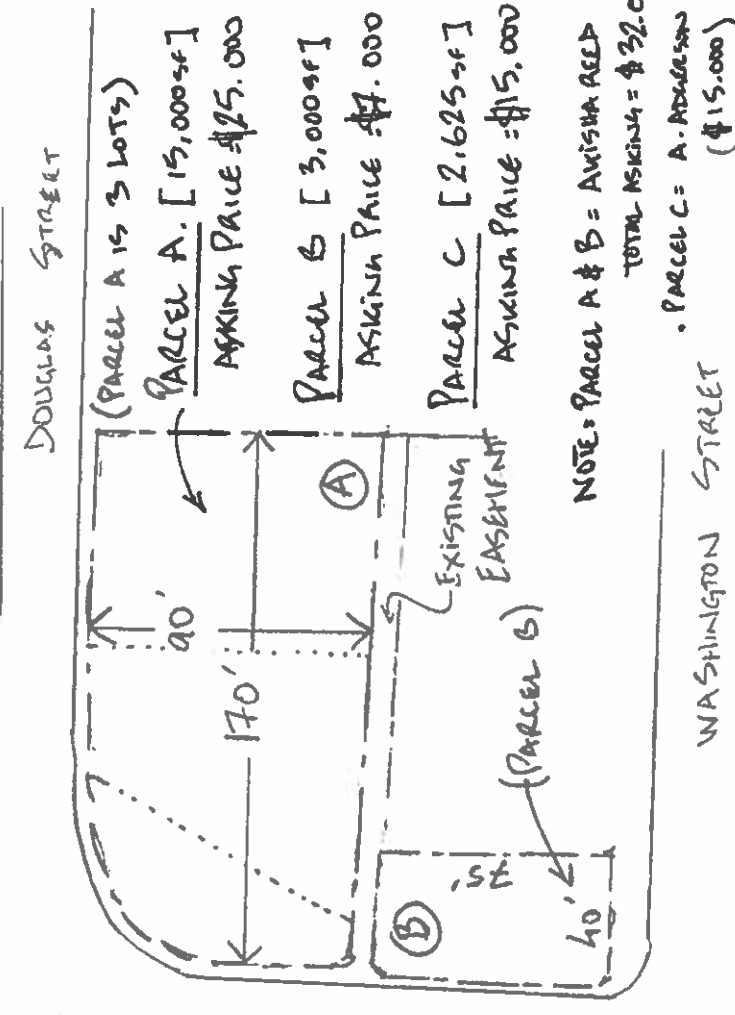 DOUGLAS STREET
(PARCEL A IS 3 LOTS)
PARCEL A. [15,000 SF]
ASKING PRICE = $25.000
PARCEL B [3,000 SF]
ASKING PRICE = $7.000
PARCEL C [2,625 SF]
ASKING PRICE = $15.000
NOTE: PARCEL A & B = AKISHA REED
TOTAL ASKING = $32.0
• PARCEL C = A. ADGERSON
($15.000)
90'
170'
A
EXISTING
EASEMENT
(PARCEL B)
B
75'
40'
WASHINGTON STREET